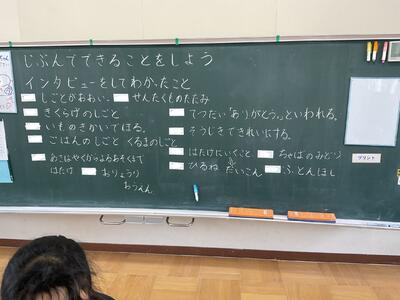 じぶんでできることをしよう
インタビューをしてわかったこと
しごとがおおい。 せんたくものたたみ
きくらげのしごと。
いものきかいでほる。
ごはんのしごと くるまのしごと
あさはやくからよるおそくまで
はたけ おりょうり
おうえん。
てつだい「ありがとう。」といわれる。
そうじできれいにする。
はたけにいくこと ちゃばのみどり
ひるね だいこん ふとんほし
プリント